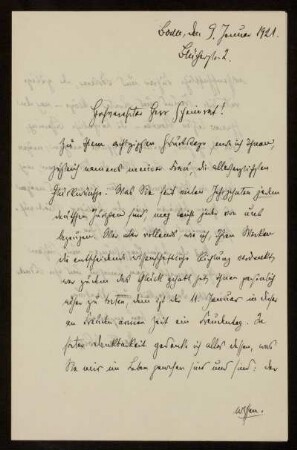 Bonn, den 9. Januar 1921.
Blücherstr. 2.
Hochverehrter Herr Geheimrat!
Zu Ihrem achtzigsten Geburtstage sende ich Ihnen,
zugleich namens meiner Frau, die allerherzlichsten
Glückwünsche. Was Sie seit vielen Jahrzehnten jedem
deutschen Juristen sind, mag wohl jeder von uns
bezeugen. Wer aber vollends, wie ich, Ihren Werken
die entscheidende wissenschaftliche Richtung verdankt,
wer zudem das Glück gehabt hat, Ihnen persönlich
näher zu treten, dem ist der 11. Januar in dieser
an Freuden armen Zeit ein Freudentag. In
steter Dankbarkeit gedenke ich alles dessen, was
Sie mir im Leben gewesen sind und sind: der